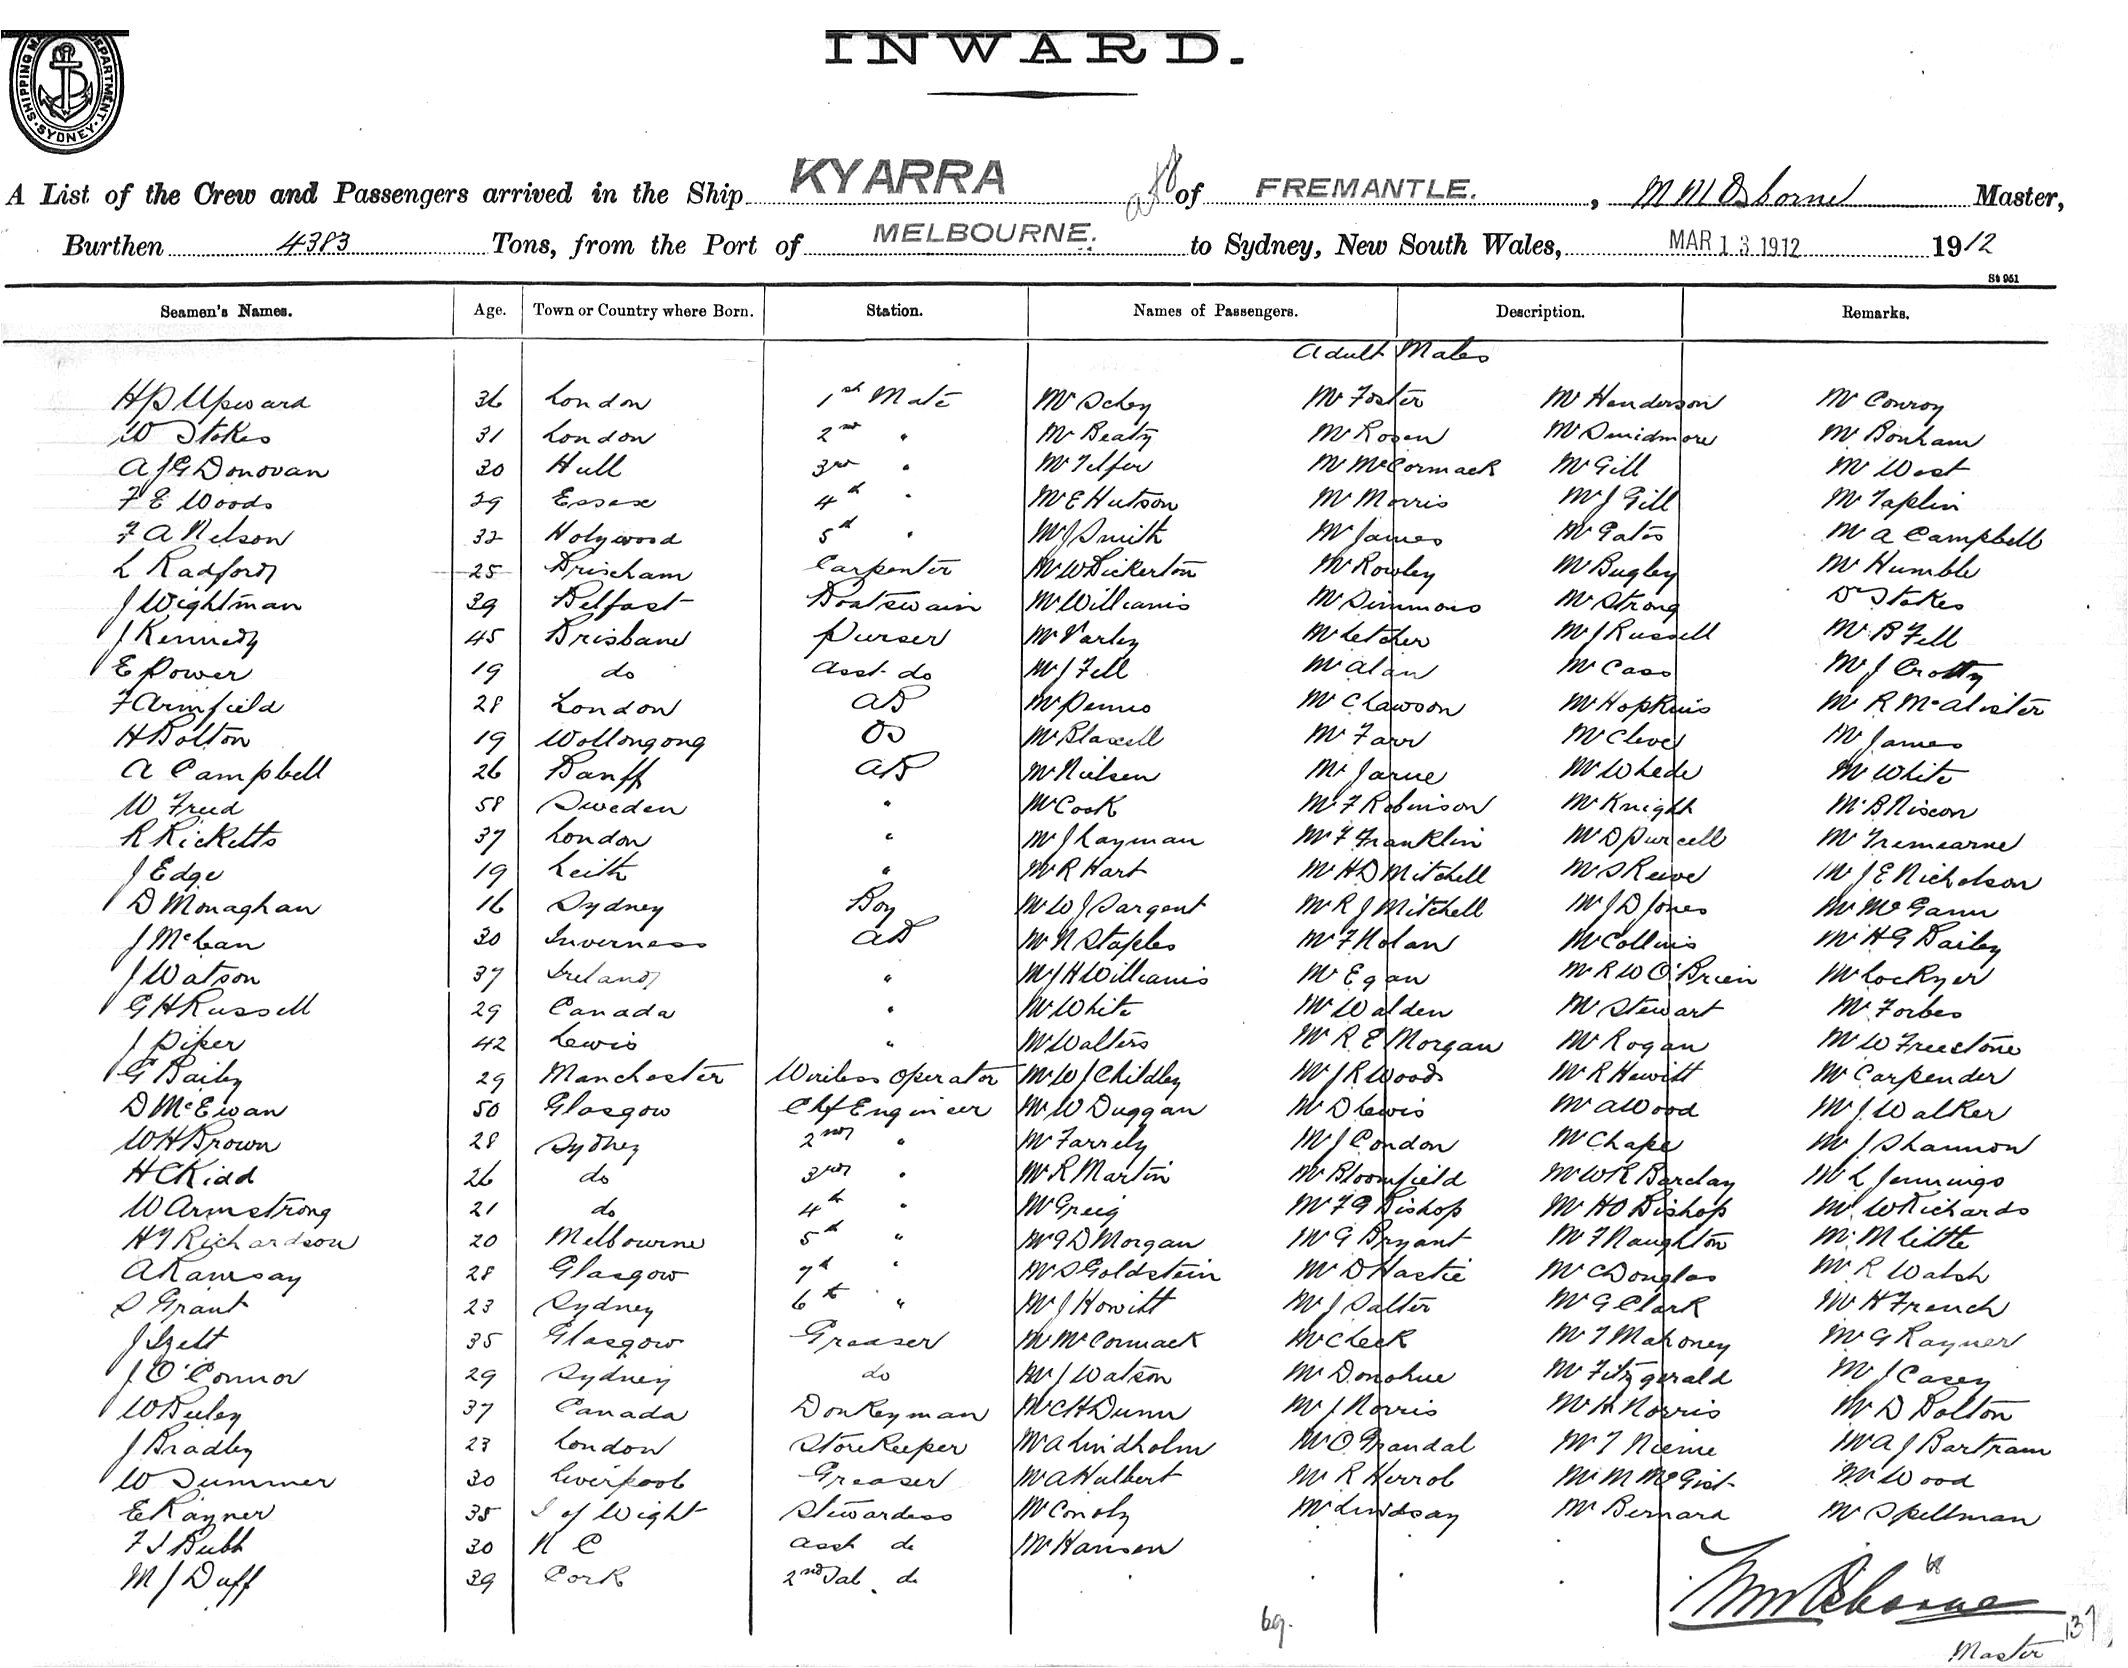 SHIPPING MA DEPARTMENT SYDNEY
INWARD.
A List of the Crew and Passengers arrived in the Ship KYARRA of FREMANTLE. , M M Osborne Master,
Burthen 4383 Tons, from the Port of MELBOURNE. to Sydney, New South Wales, MAR 13 1912 1912
St 951
Seamen's Names. Age. Town or Country where Born. Station. Names of Passengers. Description. Remarks.
Adult Males
H P Upward 36 London 1st Mate Mr Schey Mr Foster Mr Henderson Mr Conroy
W Stokes 31 London 2nd " Mr Beaty Mr Rosen Mr Smidmore Mr Bonham
A J G Donovan 30 Hull 3rd " Mr Telfer Mr McCormack Mr Gill Mr West
F E Woods 29 Essex 4th " Mr E Hutson Mr Morris Mr J Gill Mr Taplin
F A Nelson 32 Holywood 5th " Mr J Smith Mr James Mr Gates Mr A Campbell
L Radford 25 Brixham Carpenter Mr W Bickerton Mr Rowley Mr Bugley Mr Humble
J Wightman 39 Belfast Boatswain Mr Williams Mr Simmons Mr Strong Dr Stokes
J Kennedy 45 Brisbane Purser Mr Varley Mr Letcher Mr J Russell Mr B Fell
E Power 19 do Asst do Mr J Fell Mr Alan Mr Cass Mr J Crotty
F Armfield 28 London AB Mr Penno Mr C Lawson Mr Hopkins Mr R McAlister
H Bolton 19 Wollongong OS Mr Blaxell Mr Farr Mr Cleve Mr James
A Campbell 26 Banff AB Mr Nielsen Mr Jarne Mr W Lede Mr White
W Freed 58 Sweden " Mr Cook Mr F Robinson Mr Knight Mr B Nixon
R Ricketts 37 London " Mr J Layman Mr F Franklin Mr D Purcell Mr Tremearne
J Edge 19 Leith " Mr R Hart Mr H D Mitchell Mr S Reeve Mr J E Nicholson
D Monaghan 16 Sydney Boy Mr W J Sargent Mr R J Mitchell Mr J D Jones Mr McGann
J McLean 30 Inverness AB Mr N Staples Mr F Nolan Mr Collins Mr H G Bailey
J Watson 37 Ireland " Mr J H Williams Mr Egan Mr R W O'Brien Mr Lockyer
G H Russell 29 Canada " Mr White Mr Walden Mr Stewart Mr Forbes
J Piper 42 Lewis " Mr Walters Mr R E Morgan Mr Rogan Mr W Freestone
G Bailey 29 Manchester Wireless Operator Mr W J Childley Mr J R Woods Mr R Hewitt Mr Carpender
D McEwan 50 Glasgow Chf Engineer Mr W Duggan Mr D Lewis Mr A Wood Mr J Walker
W H Brown 28 Sydney 2nd " Mr Farrely Mr J Condon Mr Chape Mr J Shannon
H C Kidd 26 do 3rd " Mr R Martin Mr Bloomfield Mr W R Barclay Mr L Jennings
W Armstrong 21 do 4th " Mr Greig Mr F G Bishop Mr H O Bishop Mr W Richards
H T Richardson 20 Melbourne 5th " Mr G D Morgan Mr G Bryant Mr F Naughton Mr M Little
A Ramsay 28 Glasgow 7th " Mr S Goldstein Mr D Hastie Mr C Douglas Mr R Walsh
S Grant 23 Sydney 6th " Mr J Howitt Mr J Salter Mr G Clark Mr H French
J Izett 35 Glasgow Greaser Mr McCormack Mr Cleek Mr T Mahoney Mr G Rayner
J O'Connor 29 Sydney do Mr J Watson Mr Donohue Mr Fitzgerald Mr J Casey
W Bieley 37 Canada Donkeyman Mr C H Dunn Mr J Norris Mr H Norris Mr D Bolton
J Bradley 23 London Storekeeper Mr A Lindholm Mr O Grandal Mr T Nieme Mr A J Bartram
W Summer 30 Liverpool Greaser Mr A Hulbert Mr R Herrob Mr M McGist Mr Wood
E Rayner 35 I of Wight Stewardess Mr Conoly Mr Lindsay Mr Bernard Mr Spellman
F I Bubb 30 N C Asst do Mr Hansen
M J Duff 39 Cork 2nd Sal do
68
69.
M M Osborne
137
Master